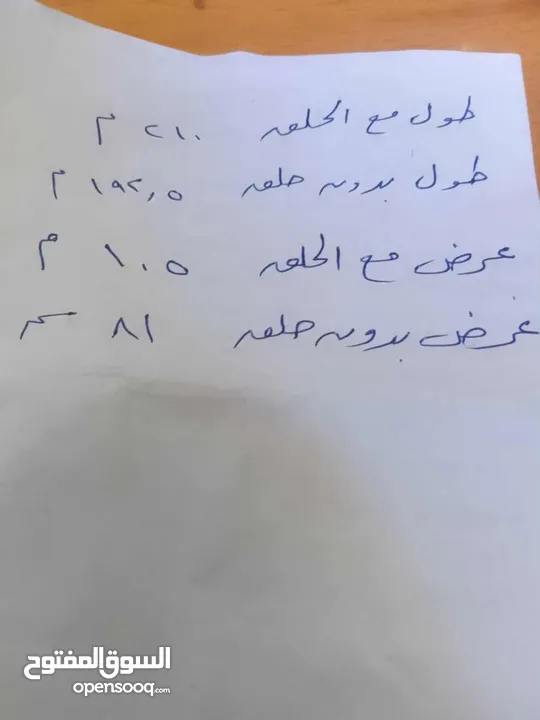 طول مع الحلقه ٢١٠ م
طول بدون حلقه ١٩٢,٥ م
عرض مع الحلقه ١٠٥ م
عرض بدون حلقه ٨١ سم
السوق المفتوح
opensooq.com